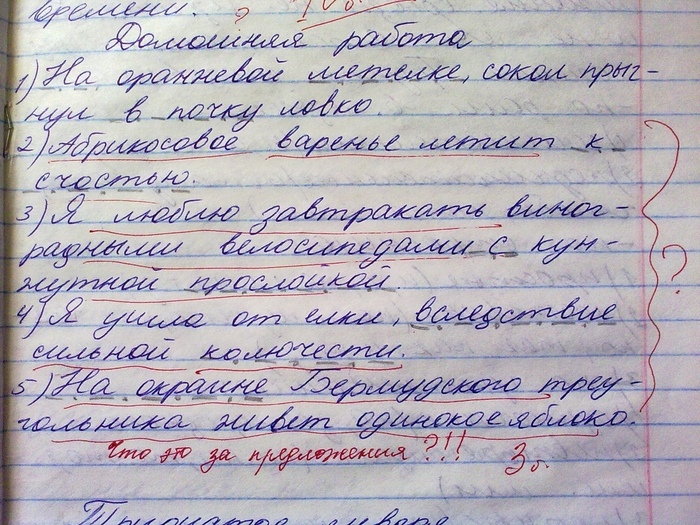 времени.
Домашняя работа
1) На оранжевой метелке, сокол прыг-
нул в почку ловко.
2) Абрикосовое варенье летит к
счастью.
3) Я люблю завтракать виног-
радными велосипедами с кун-
жутной прослойкой.
4) Я ушла от елки, вследствие
сильной колючести.
5) На окраине Бермудского треу-
гольника живет одинокое яблоко.
Что это за предложения?!!! 3б.